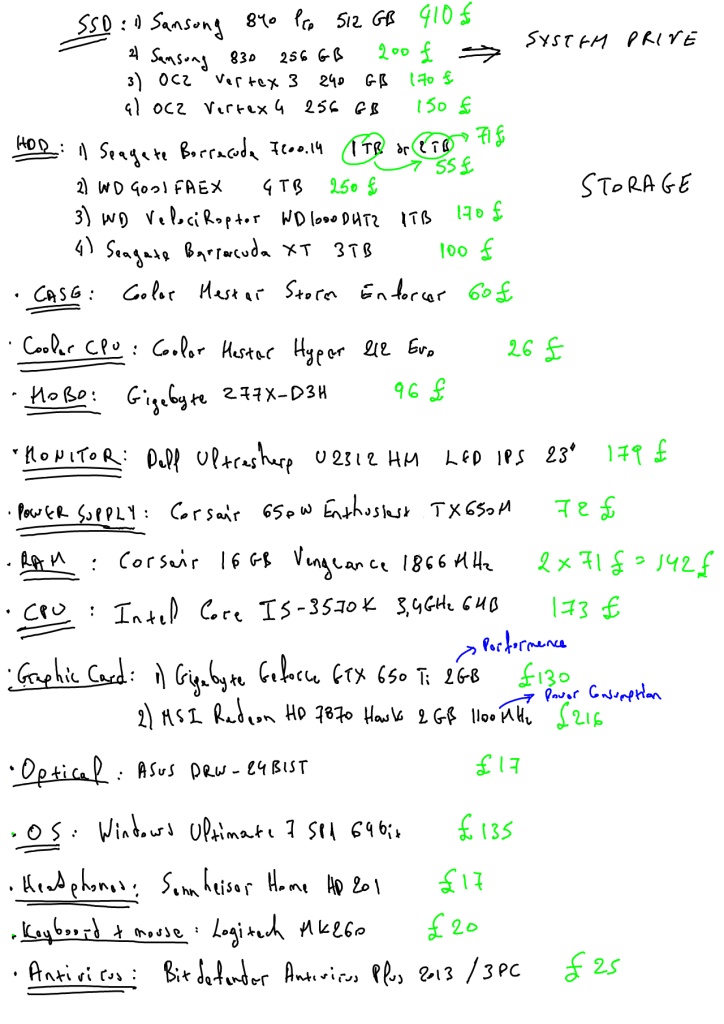 SSD: 1) Samsung 840 Pro 512 GB 410 £
2) Samsung 830 256 GB 200 £ ⇒ SYSTEM DRIVE
3) OCZ Vertex 3 240 GB 170 £
4) OCZ Vertex 4 256 GB 150 £
HDD: 1) Seagate Barracuda 7200.14 1TB or 2TB → 71£
55£
2) WD4001FAEX 4TB 250 £
STORAGE
3) WD VelociRaptor WD1000DHTZ 1TB 170 £
4) Seagate Barracuda XT 3TB 100 £
• CASE: Cooler Master Storm Enforcer 60£
• Cooler CPU: Cooler Master Hyper 212 Evo 26 £
• MOBO: Gigabyte Z77X-D3H 96 £
• MONITOR: Dell Ultrasharp U2312HM LED IPS 23" 179 £
• POWER SUPPLY: Corsair 650W Enthusiast TX650M 72 £
• RAM: Corsair 16GB Vengeance 1866MHz 2 x 71 £ = 142£
• CPU: Intel Core I5-3570K 3,4GHz 6MB 173 £
→ Performance
• Graphic Card: 1) Gigabyte Geforce GTX 650 Ti 2GB £130
→ Power Consumption
2) MSI Radeon HD 7870 Hawk 2GB 1100MHz £216
• Optical: ASUS DRW-24B1ST £17
• OS: Windows Ultimate 7 SP1 64bit £135
• Headphones: Sennheiser Home HD 201 £17
• Keyboard + mouse: Logitech MK260 £20
• Antivirus: Bitdefender Antivirus Plus 2013 / 3PC £25